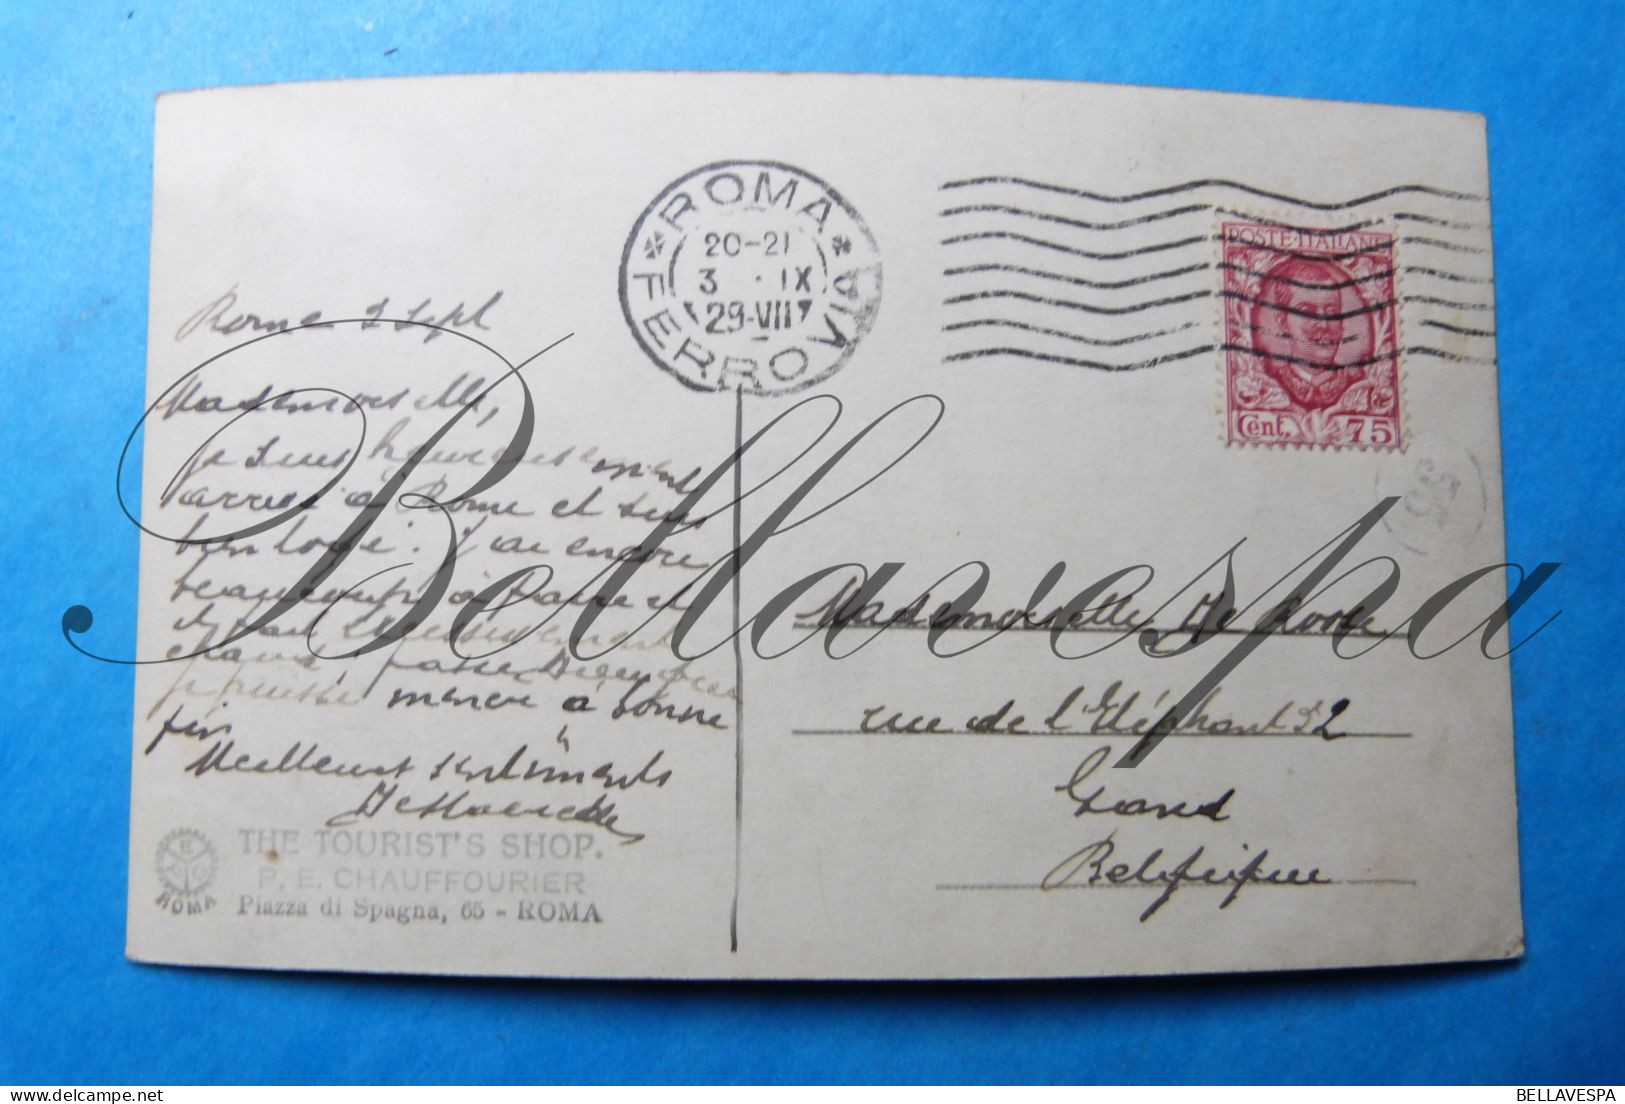 ROMA
FERROVIA
20-21
3 . IX
29-VII
POSTE ITALIANE
Cent. 75
Rome 2 Sept
Mademoiselle,
je suis heureusement
arrivé à Rome et suis
bien logé. J'ai encore
beaucoup à faire et
excessivement
je puisse mener à bonne
fin
Meilleurs sentiments
Mademoiselle De
rue de l'Eléphant 52
Gand
Belgique
THE TOURIST'S SHOP.
P. E. CHAUFFOURIER
Piazza di Spagna, 65 - ROMA
ROMA
Bellavespa
BELLAVESPA